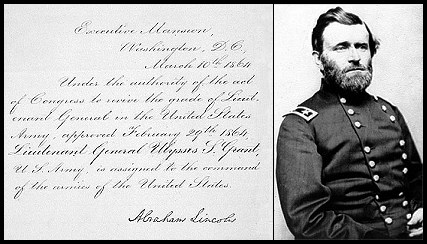 Executive Mansion,
Washington, D.C,
March 10th 1864
Under the authority of the act
of Congress to revive the grade of Lieut-
enant General in the United States
Army, approved February 29th 1864,
Lieutenant General Ulysses S. Grant,
U.S. Army, is assigned to the command
of the armies of the United States.
Abraham Lincoln